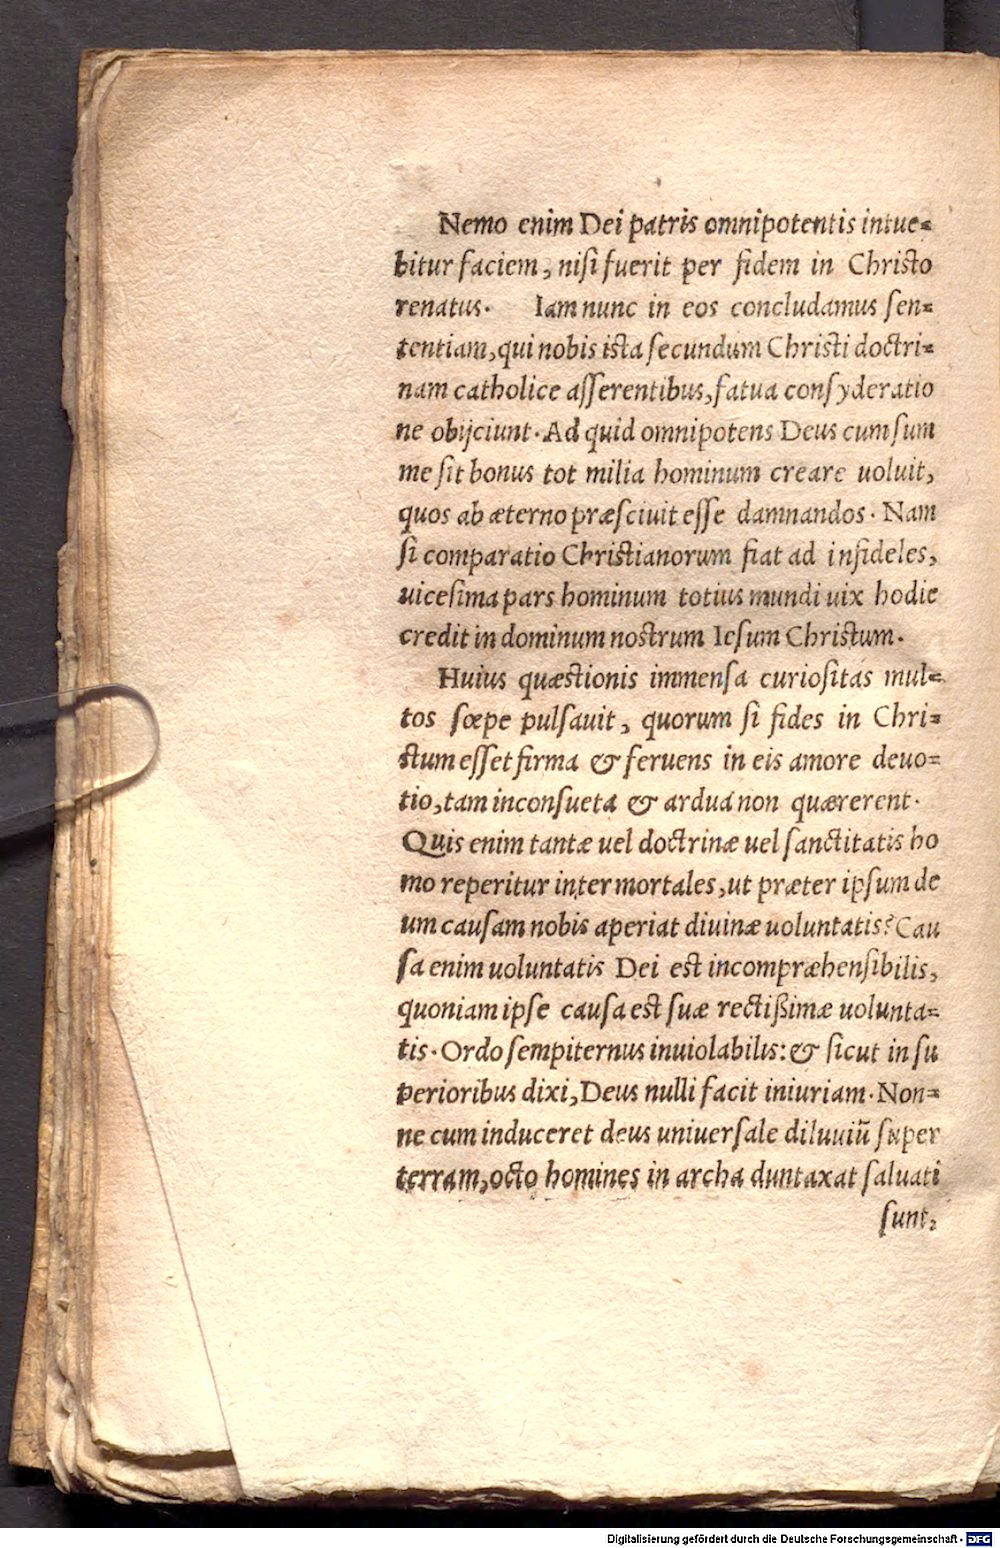 Nemo enim Dei patris omnipotentis intue=
bitur faciem, nisi fuerit per fidem in Christo
renatus. Iam nunc in eos concludamus sen=
tentiam, qui nobis ista secundum Christi doctri=
nam catholice asserentibus, fatua consyderatio
ne obijciunt. Ad quid omnipotens Deus cum sum
me sit bonus tot milia hominum creare uoluit,
quos ab æterno præsciuit esse damnandos. Nam
si comparatio Christianorum fiat ad infideles,
uicesima pars hominum totius mundi uix hodie
credit in dominum nostrum Iesum Christum.
Huius quæstionis immensa curiositas mul=
tos sœpe pulsauit, quorum si fides in Chri=
stum esset firma & feruens in eis amore deuo=
tio, tam inconsueta & ardua non quærerent.
Quis enim tantæ uel doctrinæ uel sanctitatis ho
mo reperitur inter mortales, ut præter ipsum de
um causam nobis aperiat diuinæ uoluntatis? Cau
sa enim uoluntatis Dei est incompræhensibilis,
quoniam ipse causa est suæ rectißimæ uolunta=
tis. Ordo sempiternus inuiolabilis: & sicut in su
perioribus dixi, Deus nulli facit iniuriam. Non=
ne cum induceret deus uniuersale diluuiū super
terram, octo homines in archa duntaxat saluati
sunt,
Digitalisierung gefördert durch die Deutsche Forschungsgemeinschaft - DFG